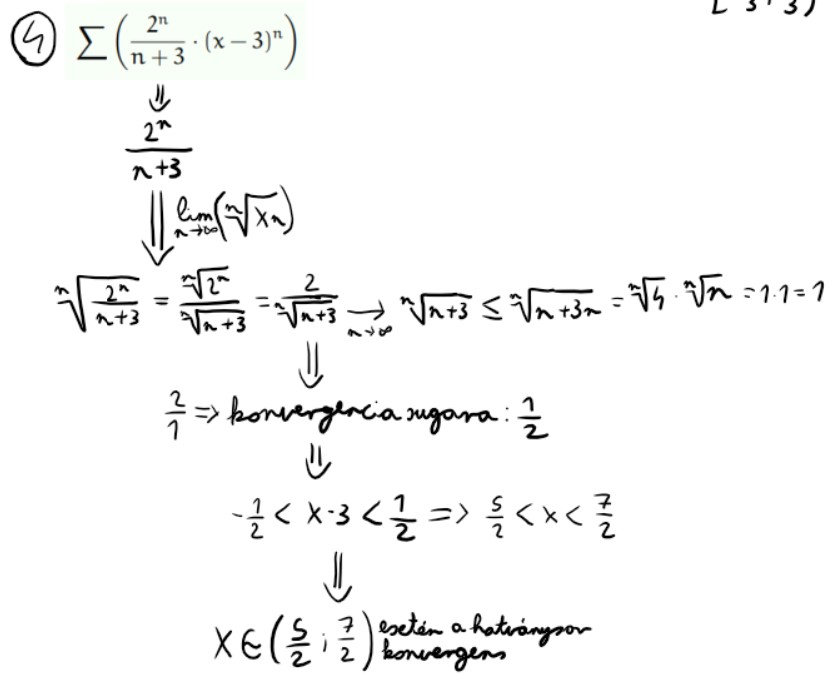 [ 3 ; 3 )
④ ∑ ( 2ⁿ/(n+3) · (x − 3)ⁿ )
⇓
2ⁿ/(n+3)
⇓ lim n→∞ (ⁿ√xₙ)
ⁿ√(2ⁿ/(n+3)) = ⁿ√2ⁿ/ⁿ√(n+3) = 2/ⁿ√(n+3) → n→∞ ⁿ√(n+3) ≤ ⁿ√(n+3n) = ⁿ√4 · ⁿ√n = 1·1 = 1
⇓
2/1 => konvergencia sugara: 1/2
⇓
-1/2 < x-3 < 1/2 => 5/2 < x < 7/2
⇓
x ∈ (5/2 ; 7/2) esetén a hatványsor
konvergens